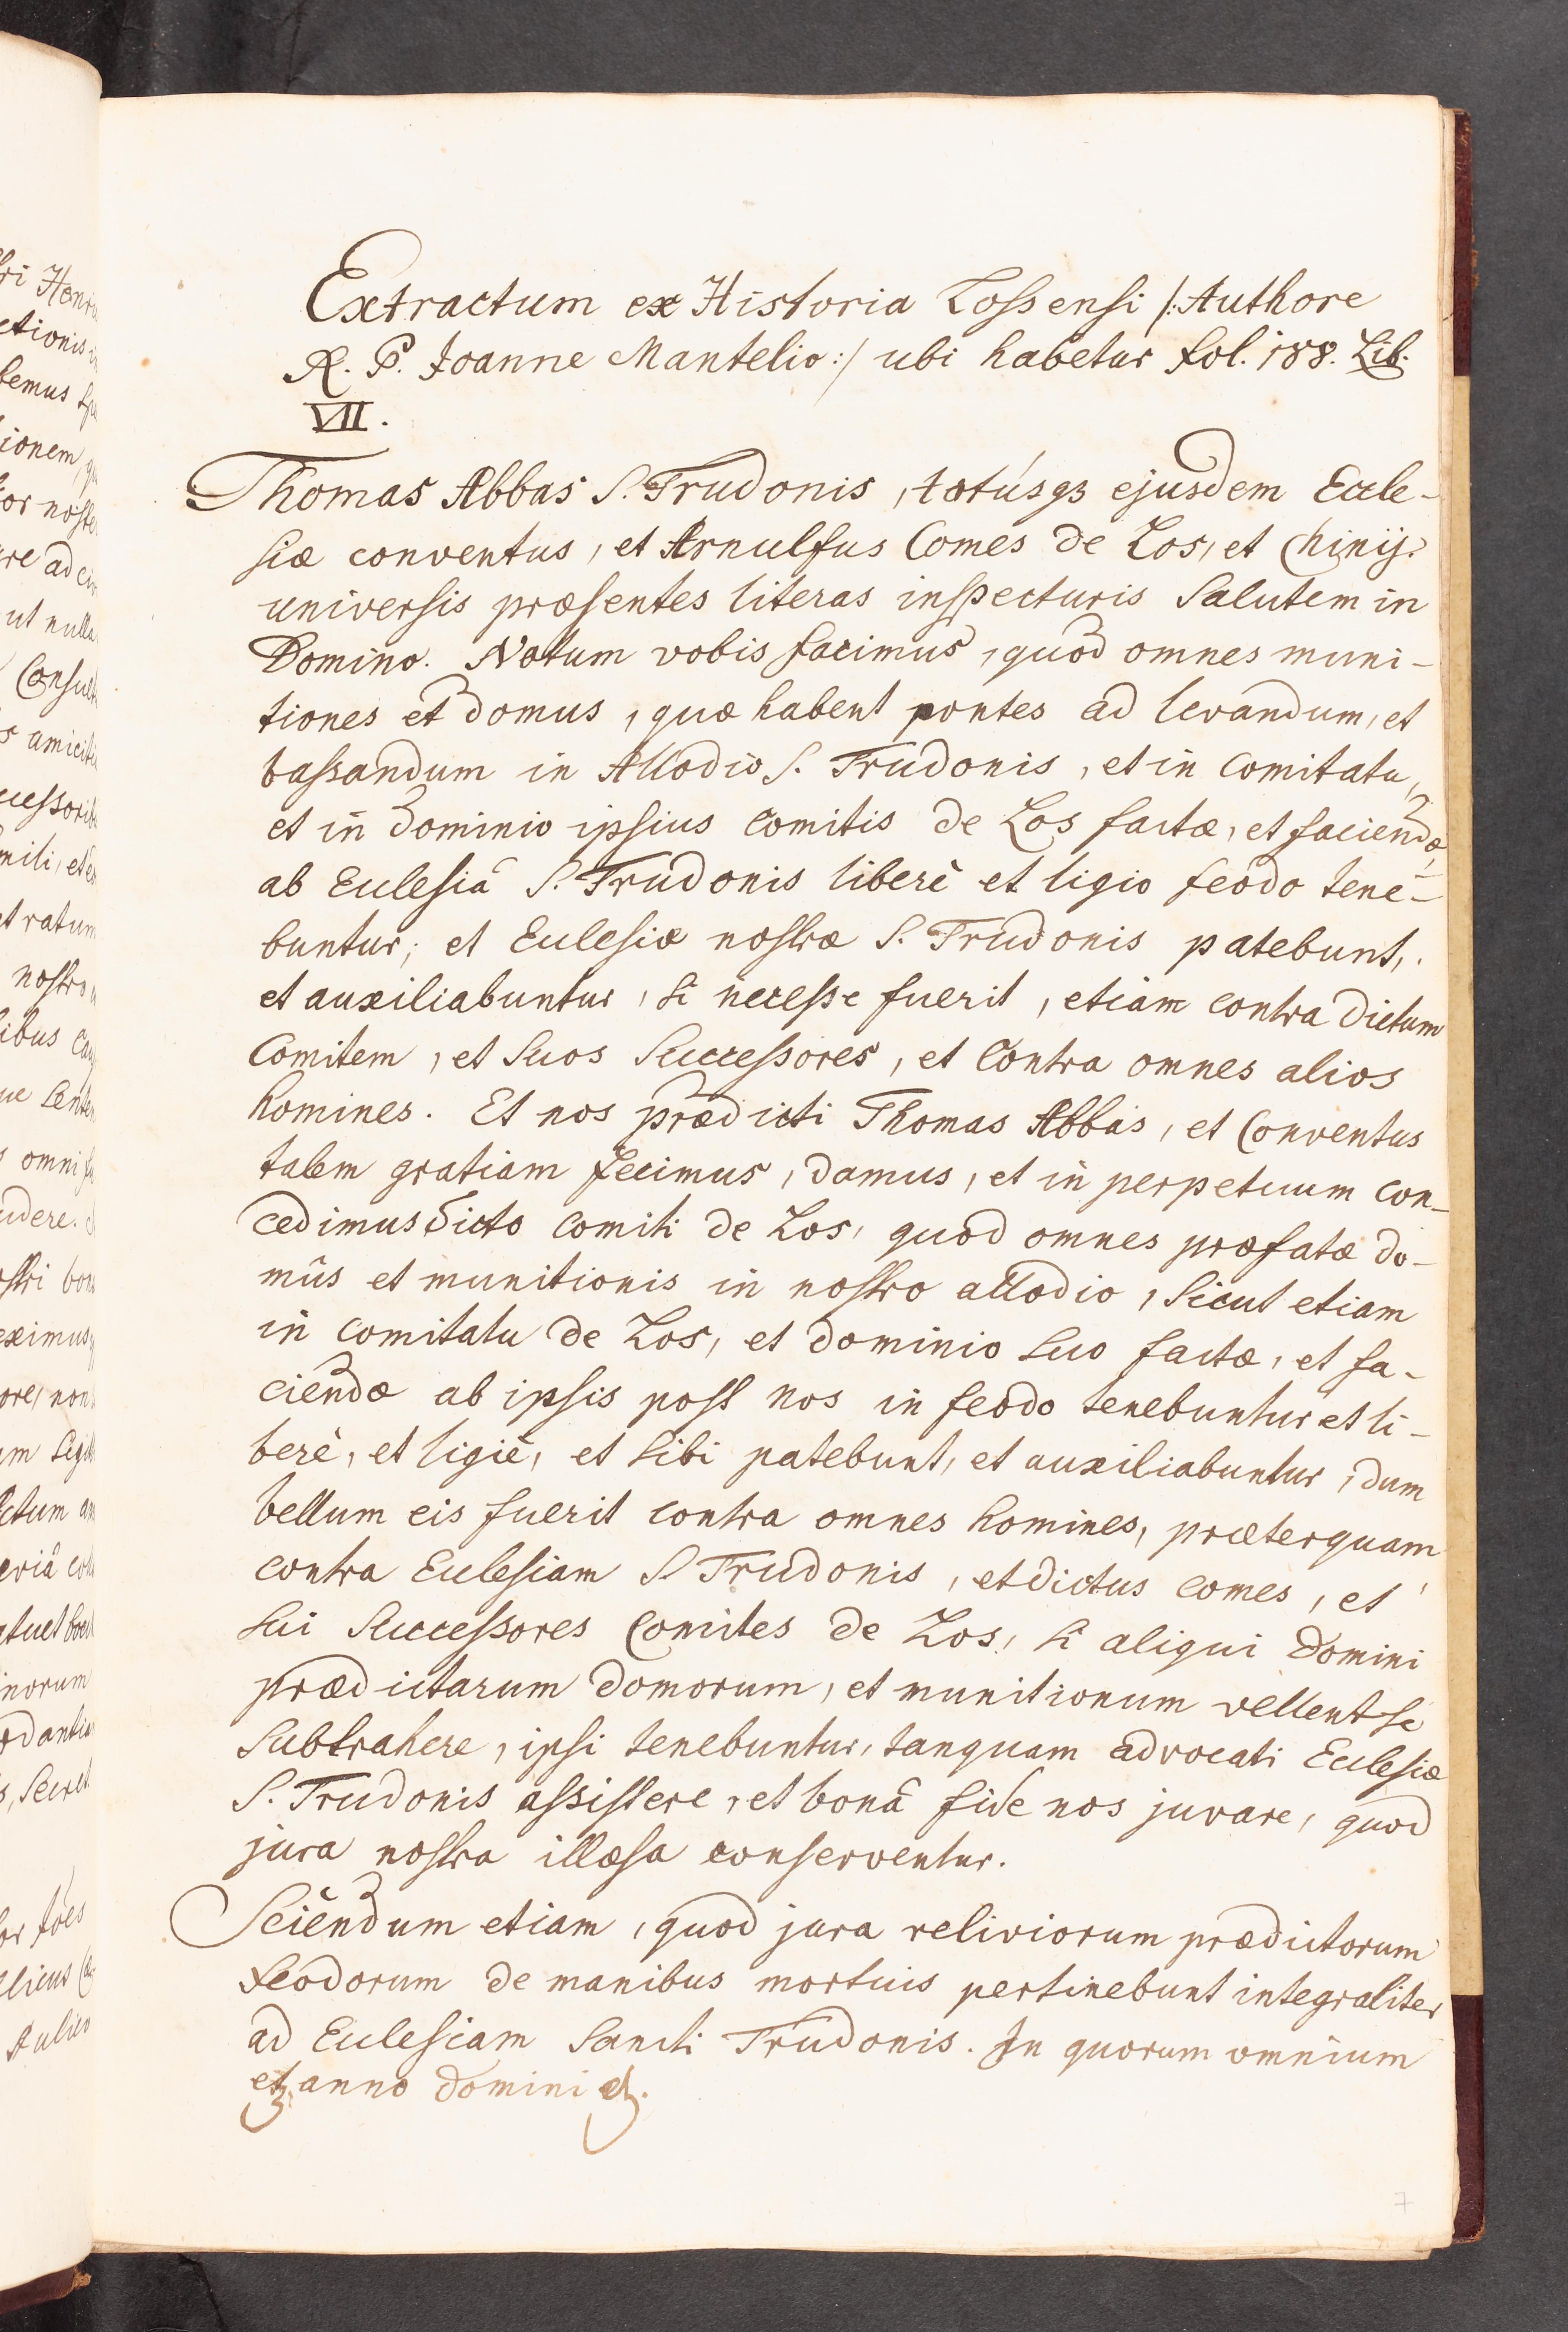 Extractum ex Historia Lossensi /: Authore
R. P. Joanne Mantelio :/ ubi habetur fol. 188. Lib.
VII.
Thomas Abbas S. Trudonis, totúsqз ejusdem Eccle-
siæ conventus, et Arnulfus Comes de Los, et Chinij:
universis præsentes literas inspecturis Salutem in
Domino. Notum vobis facimus, quod omnes muni-
tiones et domus, quæ habent pontes ad levandum, et
bassandum in Allodio S. Trudonis, et in Comitatu,
et in dominio ipsius comitis de Los factæ, et faciendæ,
ab Ecclesiâ S. Trudonis liberè et ligio feodo tene-
buntur; et Ecclesiæ nostræ S. Trudonis patebunt,
et auxiliabuntur, si necesse fuerit, etiam contra dictum
Comitem, et Suos Successores, et Contra omnes alios
homines. Et nos prædicti Thomas Abbas, et Conventus
talem gratiam fecimus, damus, et in perpetuum con-
cedimus dicto Comiti de Los, quod omnes præfatæ do-
mûs et munitionis in nostro allodio, Sicut etiam
in comitatu de Los, et dominio suo factæ, et fa-
ciendæ ab ipsis post nos in feodo tenebuntur et li-
berè, et ligiè, et sibi patebunt, et auxiliabuntur, dum
bellum eis fuerit contra omnes homines, præterquam
contra Ecclesiam S. Trudonis, et dictus comes, et
sui Successores Comites de Los, si aliqui Domini
prædictarum domorum, et munitionum vellent se
subtrahere, ipsi tenebuntur, tanquam advocati Ecclesiæ
S. Trudonis assistere, et bonâ fide nos juvare, quod
jura nostra illæsa conserventur.
Sciendum etiam, quod jura reliviorum prædictorum
feodorum de manibus mortuis pertinebunt integraliter
ad Ecclesiam Sancti Trudonis. In quorum omnium
etз anno Domini etз.
7